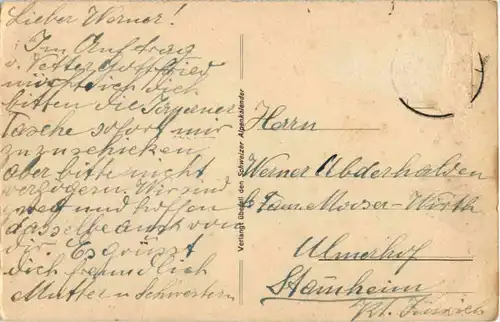 Lieber Werner!
Im Auftrag
v. Vetter Gottfried
möchte ich dich
bitten die
Tasche sofort mir
zuzuschicken
aber bitte nicht
verzögern. Wir sind
und hoffen
dasselbe auch von
dir. Es grüsst
dich freundlich
Mutter u Schwestern
Verlangt überall den Schweizer Alpenkalender
Herrn
Werner Abderhalden
b/ Fam. Mooser-Wirth
Ulmerhof
Stamheim
Kt. Zürich